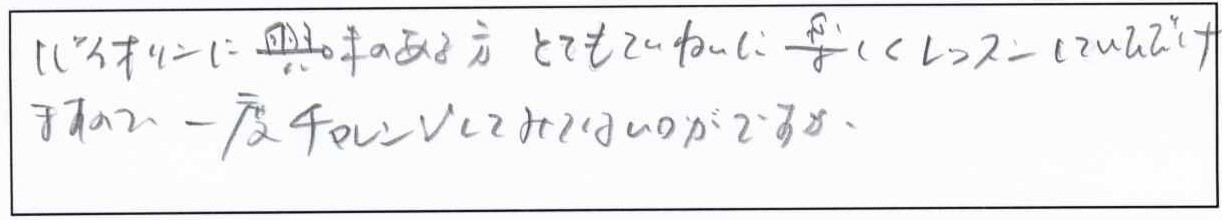 バイオリンに興味のある方 とてもていねいに 楽しくレッスンしていただけ
ますので、一度チャレンジしてみてはいかがですか。